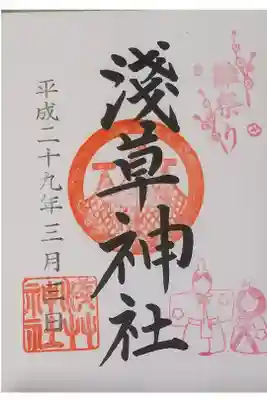 雛祭り
淺草神社
平成二十九年三月三日
淺草神社